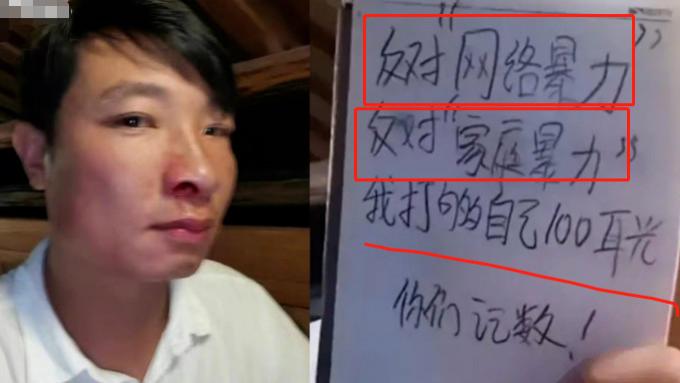 反对“网络暴力”
反对“家庭暴力”
我打自己100耳光
你们记数！